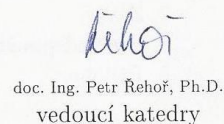 Řehoř
doc. Ing. Petr Řehoř, Ph.D.
vedoucí katedry